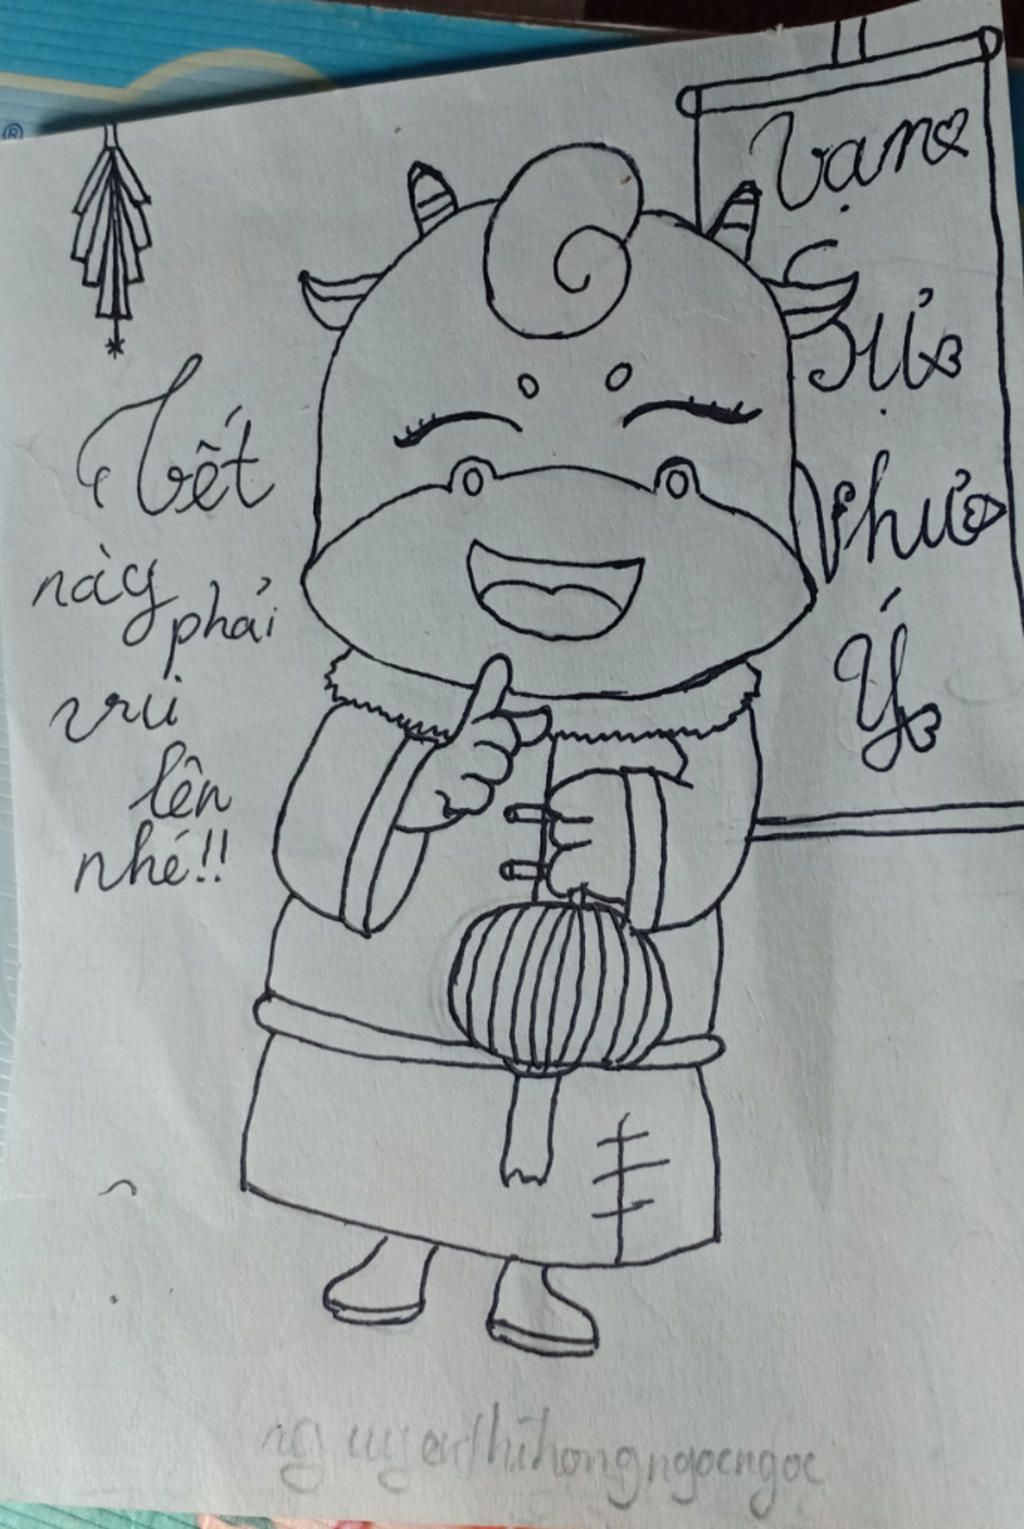 Tết
này phải
vui
lên
nhé!!
Vạn
Sự
Như
Ý
nguyenthihongngocngoc
®